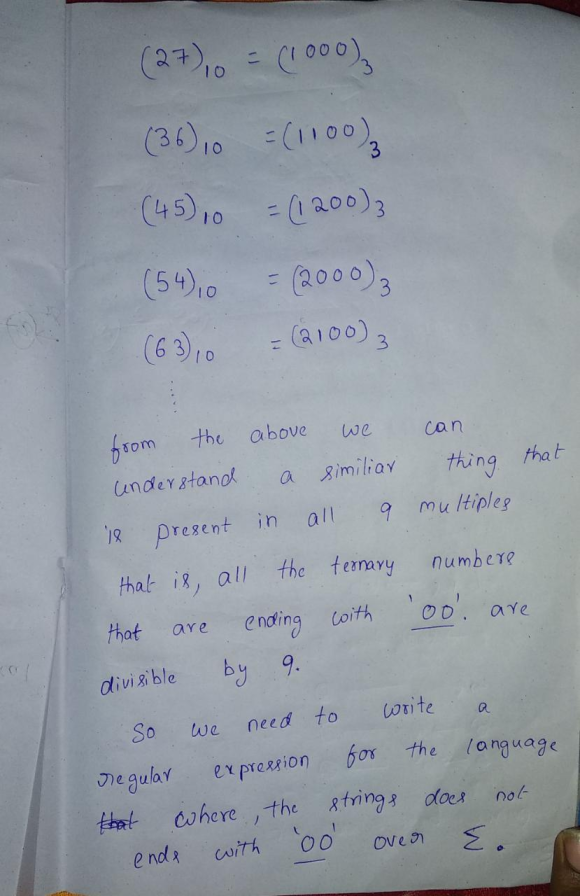 (27)₁₀ = (1000)₃
(36)₁₀ = (1100)₃
(45)₁₀ = (1200)₃
(54)₁₀ = (2000)₃
(63)₁₀ = (2100)₃
from the above we can
understand a similiar thing that
is present in all 9 multiples
that is, all the ternary numbers
that are ending with '00'. are
divisible by 9.
So we need to write a
regular expression for the language
where, the strings does not
ends with '00' over Σ.